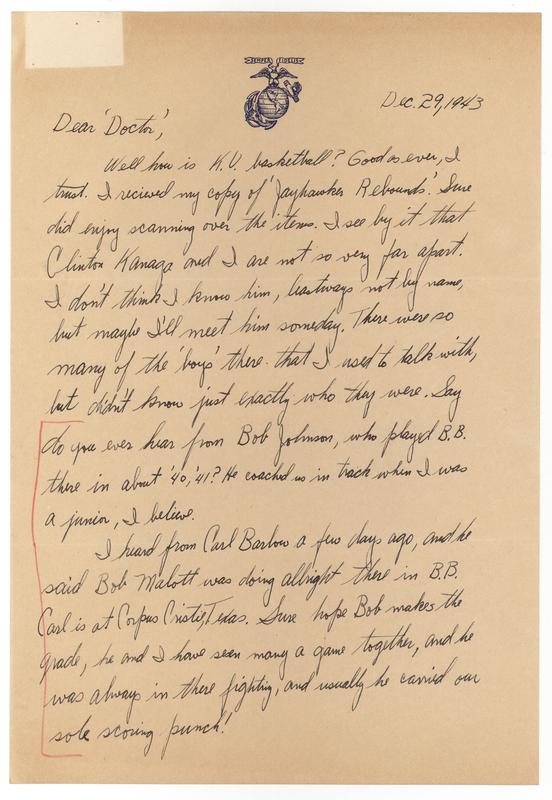 SEMPER FIDELIS
Dec. 29, 1943
Dear 'Doctor',
Well how is K.U. basketball? Good as ever, I
trust. I recieved my copy of 'Jayhawker Rebounds'. Sure
did enjoy scanning over the items. I see by it that
Clinton Kanaga and I are not so very far apart.
I don't think I know him, leastways not by name,
but maybe I'll meet him someday. There were so
many of the 'boys' there that I used to talk with,
but didn't know just exactly who they were. Say
do you ever hear from Bob Johnson, who played B.B.
there in about '40, '41? He coached us in track when I was
a junior, I believe.
I heard from Carl Barlow a few days ago, and he
said Bob Malott was doing allright there in B.B.
Carl is at Corpus Cristie, Texas. Sure hope Bob makes the
grade, he and I have seen many a game together, and he
was always in there fighting, and usually he carried our
sole scoring punch!